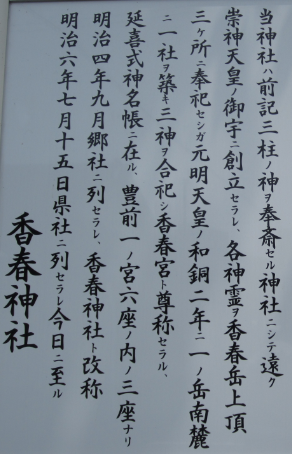 当神社ハ前記三柱ノ神ヲ奉斎セル神社ニシテ遠ク
崇神天皇ノ御宇ニ創立セラレ、各神霊ヲ香春岳上頂
三ケ所ニ奉祀セシガ元明天皇ノ和銅二年ニ一ノ岳南麓
ニ一社ヲ築キ三神ヲ合祀シ香春宮ト尊称セラル、
延喜式神名帳ニ在ル、豊前一ノ宮六座ノ内ノ三座ナリ
明治四年九月郷社ニ列セラレ、香春神社ト改称
明治六年七月十五日県社ニ列セラレ今日ニ至ル
香春神社